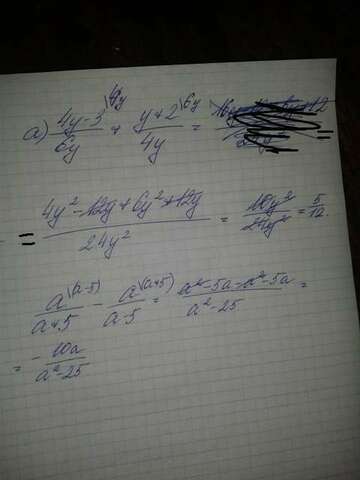 а) 4y-3 \4y / 6y + y+2 \6y / 4y =
= 4y² - 12y + 6y² + 12y / 24y² = 10y² / 24y² = 5/12.
a \(a-5) / a+5 - a \(a+5) / a-5 = a² - 5a - a² - 5a / a² - 25 =
= - 10a / a² - 25